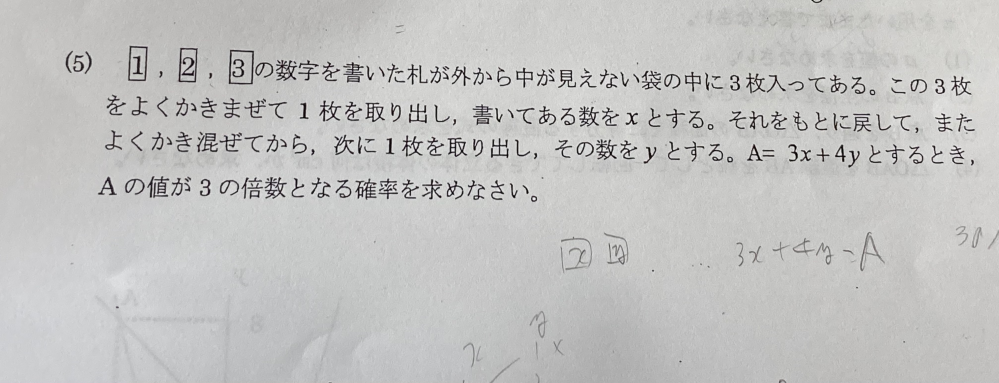 (5) 1 , 2 , 3 の数字を書いた札が外から中が見えない袋の中に3枚入ってある。この3枚
をよくかきまぜて1枚を取り出し，書いてある数をxとする。それをもとに戻して，また
よくかき混ぜてから，次に1枚を取り出し，その数をyとする。A= 3x+4yとするとき，
Aの値が3の倍数となる確率を求めなさい。
x y 3x+4y=A
y
x 1 x